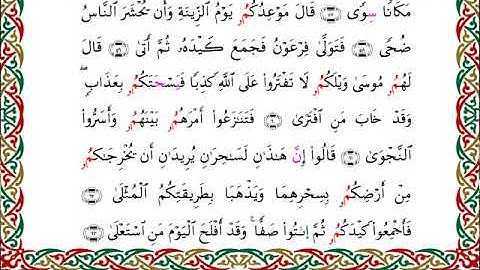 مَكَانًا سِوًى ۝ قَالَ مَوْعِدُكُمُۥ يَوْمُ ٱلزِّينَةِ وَأَن يُحْشَرَ ٱلنَّاسُ
ضُحًى ۝ فَتَوَلَّىٰ فِرْعَوْنُ فَجَمَعَ كَيْدَهُۥ ثُمَّ أَتَىٰ ۝ قَالَ
لَهُمُۥ مُوسَىٰ وَيْلَكُمُۥ لَا تَفْتَرُوا۟ عَلَى ٱللَّهِ كَذِبًا فَيَسْحَتَكُمُۥ بِعَذَابٍ ۖ
وَقَدْ خَابَ مَنِ ٱفْتَرَىٰ ۝ فَتَنَٰزَعُوٓا۟ أَمْرَهُمُۥ بَيْنَهُمُۥ وَأَسَرُّوا۟
ٱلنَّجْوَىٰ ۝ قَالُوٓا۟ إِنَّ هَٰذَٰنِ لَسَٰحِرَٰنِ يُرِيدَانِ أَن يُخْرِجَٰكُمُۥ
مِنْ أَرْضِكُمُۥ بِسِحْرِهِمَا وَيَذْهَبَا بِطَرِيقَتِكُمُ ٱلْمُثْلَىٰ ۝
فَأَجْمِعُوا۟ كَيْدَكُمُۥ ثُمَّ ٱئْتُوا۟ صَفًّا ۚ وَقَدْ أَفْلَحَ ٱلْيَوْمَ مَنِ ٱسْتَعْلَىٰ ۝